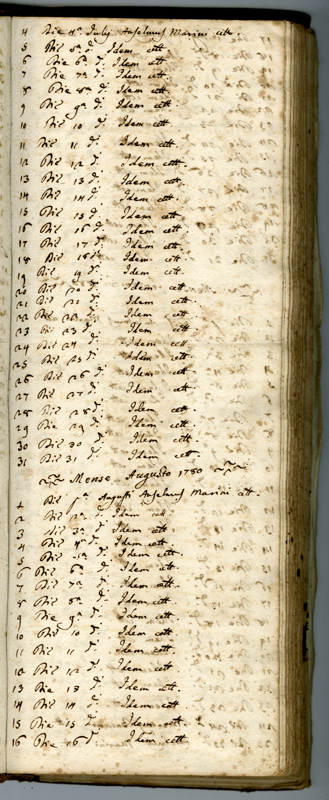 4 Die 4ª Julij Anselmus Marini cett.
5 Die 5ª dⁱ. Idem cett.
6 Die 6ª dⁱ. Idem cett.
7 Die 7ª dⁱ. Idem cett.
8 Die 8ª dⁱ. Idem cett.
9 Die 9ª dⁱ. Idem cett.
10 Die 10 dⁱ. Idem cett.
11 Die 11 dⁱ. Idem cett.
12 Die 12 dⁱ. Idem cett.
13 Die 13 dⁱ. Idem cett.
14 Die 14 dⁱ. Idem cett.
15 Die 15 dⁱ. Idem cett.
16 Die 16 dⁱ. Idem cett.
17 Die 17 dⁱ. Idem cett.
18 Die 18 dⁱ. Idem cett.
19 Die 19 dⁱ. Idem cett.
20 Die 20 dⁱ. Idem cett.
21 Die 21 dⁱ. Idem cett.
22 Die 22 dⁱ. Idem cett.
23 Die 23 dⁱ. Idem cett.
24 Die 24 dⁱ. Idem cett.
25 Die 25 dⁱ. Idem cett.
26 Die 26 dⁱ. Idem cett.
27 Die 27 dⁱ. Idem cett.
28 Die 28 dⁱ. Idem cett.
29 Die 29 dⁱ. Idem cett.
30 Die 30 dⁱ. Idem cett.
31 Die 31 dⁱ. Idem cett.
Mense Augusto 1780
1 Die 1ª Augusti Anselmus Marini cett.
2 Die 2ª dⁱ. Idem cett.
3 Die 3ª dⁱ. Idem cett.
4 Die 4ª dⁱ. Idem cett.
5 Die 5ª dⁱ. Idem cett.
6 Die 6ª dⁱ. Idem cett.
7 Die 7ª dⁱ. Idem cett.
8 Die 8ª dⁱ. Idem cett.
9 Die 9ª dⁱ. Idem cett.
10 Die 10 dⁱ. Idem cett.
11 Die 11 dⁱ. Idem cett.
12 Die 12 dⁱ. Idem cett.
13 Die 13 dⁱ. Idem cett.
14 Die 14 dⁱ. Idem cett.
15 Die 15 dⁱ. Idem cett.
16 Die 16 dⁱ. Idem cett.